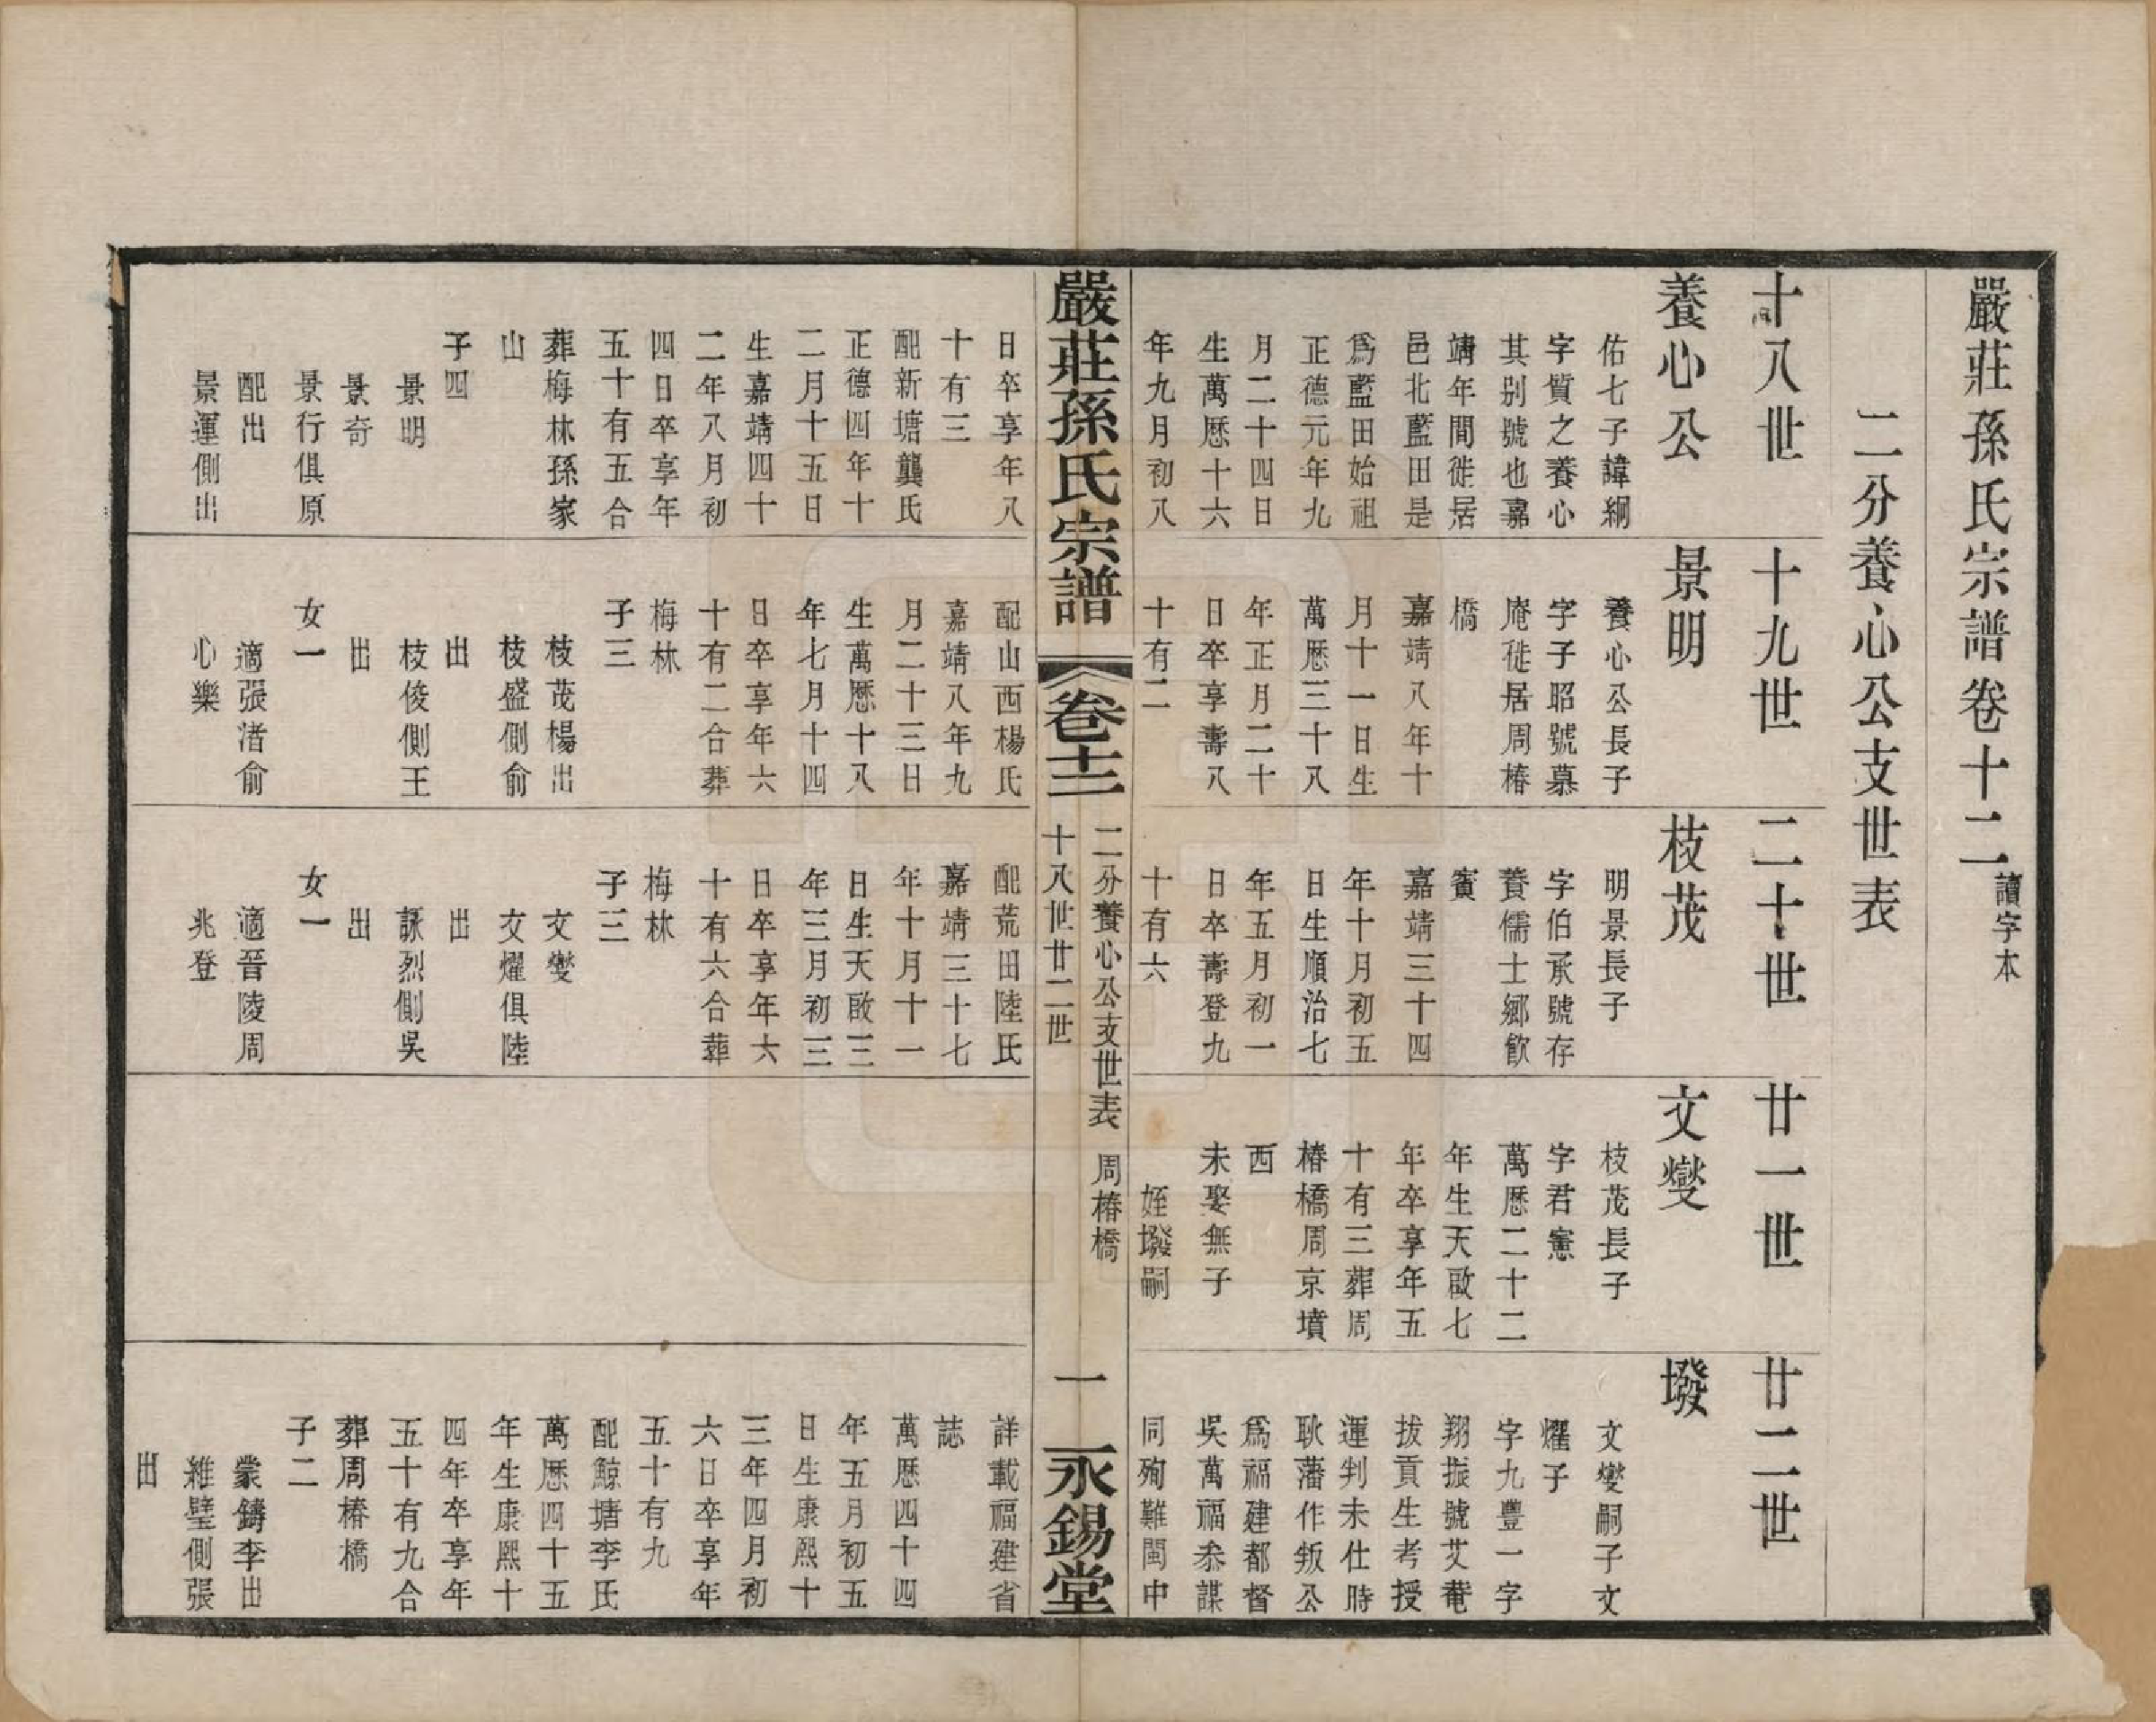 嚴莊孫氏宗譜卷十二 讀字本
二分養心公支世表
十八世
養心公
佑七子諱綱
字質之養心
其別號也嘉
靖年間徙居
邑北藍田是
爲藍田始祖
正德元年九
月二十四日
生萬歷十六
年九月初八
日卒享年八
十有三
配新塘龔氏
正德四年十
二月十五日
生嘉靖四十
二年八月初
四日卒享年
五十有五合
葬梅林孫家
山
子四
景明
景奇
景行俱原
配出
景運側出
十九世
景明
養心公長子
字子昭號慕
庵徙居周椿
橋
嘉靖八年十
月十一日生
萬歷三十八
年正月二十
日卒享壽八
十有二
配山西楊氏
嘉靖八年九
月二十三日
生萬歷十八
年七月十四
日卒享年六
十有二合葬
梅林
子三
枝茂楊出
枝盛側俞
出
枝俊側王
出
女一
適張渚俞
心樂
二十世
枝茂
明景長子
字伯承號存
養儒士鄉飲
賓
嘉靖三十四
年十月初五
日生順治七
年五月初一
日卒壽登九
十有六
配荒田陸氏
嘉靖三十七
年十月十一
日生天啟三
年三月初三
日卒享年六
十有六合葬
梅林
子三
文燮
文燿俱陸
出
訸烈側吳
出
女一
適晉陵周
兆登
廿一世
文燮
枝茂長子
字君憲
萬歷二十二
年生天啟七
年卒享年五
十有三葬周
椿橋周京墳
西
未娶無子
姪墢嗣
廿二世
墢
文燮嗣子文
燿子
字九豐一字
翔振號艾菴
拔貢生考授
運判未仕時
耿藩作叛公
爲福建都督
吳萬福叅謀
同殉難閩中
詳載福建省
誌
萬歷四十四
年五月初五
日生康熙十
三年四月初
六日卒享年
五十有九
配鯨塘李氏
萬歷四十五
年生康熙十
四年卒享年
五十有九合
葬周椿橋
子二
蒙鑄李出
維璧側張
出
嚴莊孫氏宗譜 卷十二 二分養心公支世表 周椿橋
十八世廿二世
一 永錫堂